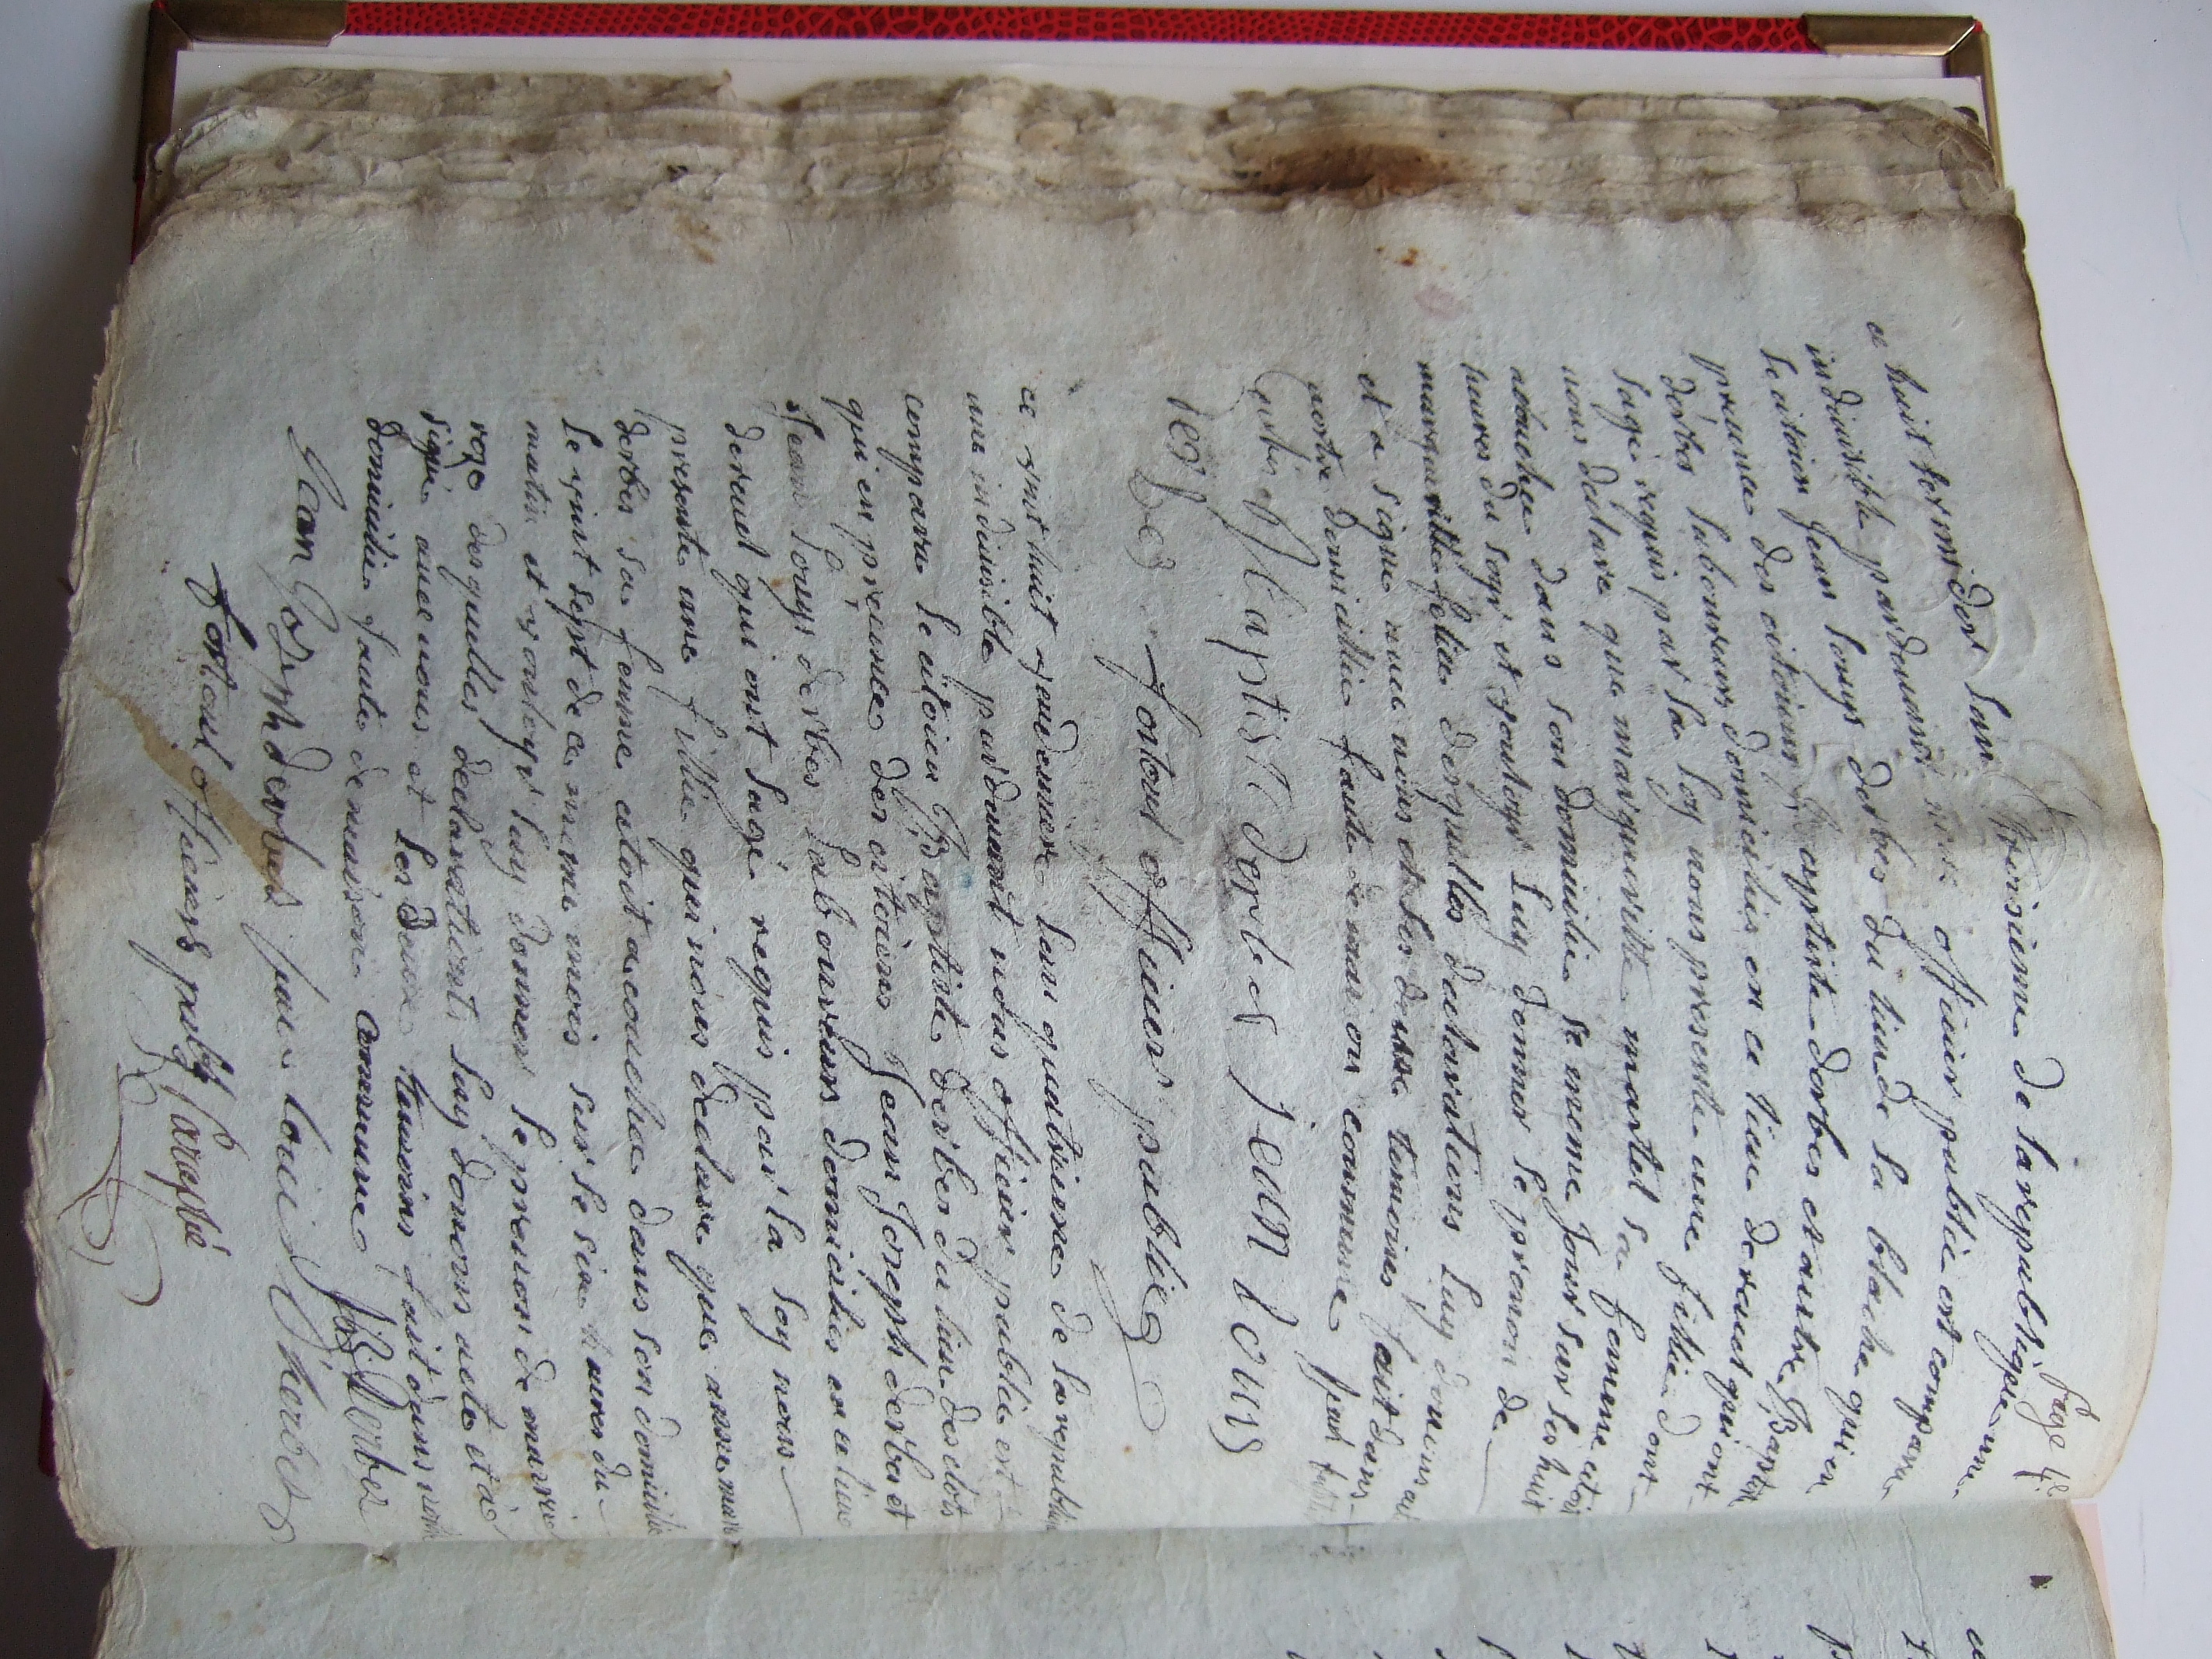 page 4e
ce huit termidor lan troisieme de la republique une
indivisible pardevant nous officier public est comparu
le citoien Jean Louys derbes du lieu de la blache qui en
presence des citoiens J Baptiste derbes et autre Baptiste
derbes laboureurs domiciliés en ce lieu de revel qui ont
l'age requis par la loy nous presente une fillie dont
nous déclare que margueritte martel sa femme etoit
acouchee dans son domicilie le meme jour sur les huit
heures du soir et vouloyr luy donner le prenon de
margueritte felicie desquelles declarations luy donons acte
et a signe avec nous et les deux temoins fait dans
notre domicilie faute de maison commune
Baptiste derbes jean Louis
Derbes fortoul officier public
ce vint huit vendemiere lan quatrieme de la republique
une indivisible pardevant nous officier public est
comparu le citoien J Baptiste derbes du lieu des clots
qui en presence des citoiens Jean Joseph derbes et
Jean Louys derbes laboureurs domiciliés en ce lieu
de revel qui ont l'agé requis par la loy nous
presente une fillie qui nous declare que anne martel
derbes sa femme etoit acouchee dans son domicilie
le vint sept de ce meme mois sur le six heures du
matin et vouloyr luy donner le prenon de marie
roze desquelles declarations luy donons acte et a
signé avec nous et les deux temoins fait dans notre
domicilie faute de maison commune J B Derbes
Jean Joseph derbes jean louis Dherbes
fortoul officier public